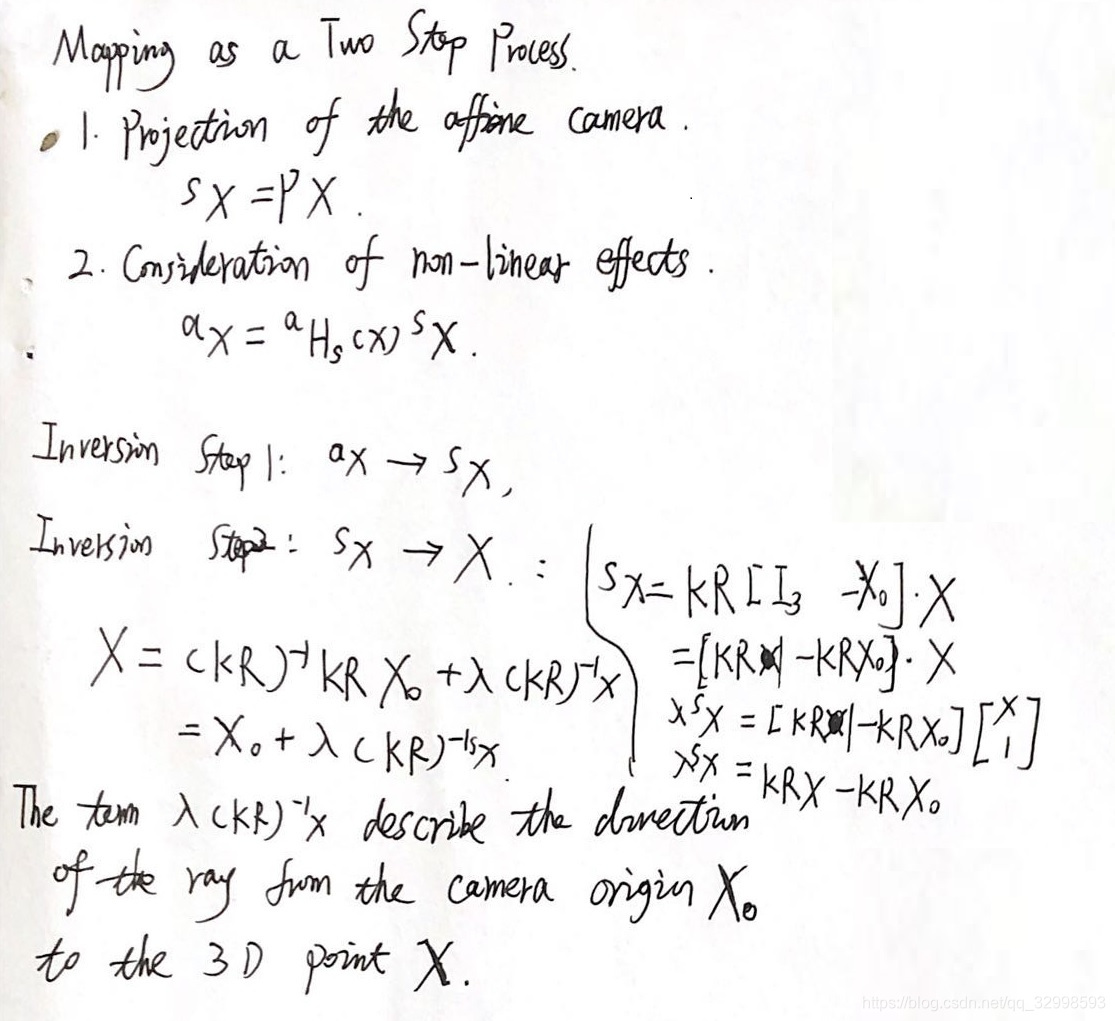 Mapping as a Two Step Process.
1. Projection of the affine camera.
ˢX = PX.
2. Consideration of non-linear effects.
ᵃX = ᵃHₛ(X) ˢX.
Inversion Step 1: ᵃX → ˢX,
Inversion Step2: ˢX → X. :
ˢX = KR[I₃ -X₀]·X
= [KR| -KRX₀]·X
λˢX = [KR|-KRX₀][X 1]
λˢX = KRX - KRX₀
X = (KR)⁻¹KR X₀ + λ(KR)⁻¹X
= X₀ + λ(KR)⁻¹ˢX.
The term λ(KR)⁻¹X describe the direction
of the ray from the camera origin X₀
to the 3D point X.
https://blog.csdn.net/qq_32998593